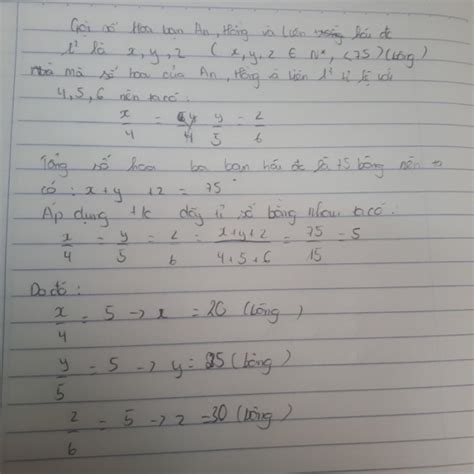 Gọi số Hoa bạn An, Hồng và Liên hái đc
l² là x, y, z ( x, y, z ∈ N*, <75) (bông)
mà số hoa của An, Hồng và Liên l² tỉ lệ với
4, 5, 6 nên ta có:
x/4 = y/5 = z/6
Tổng số hoa ba bạn hái đc là 75 bông nên ta
có : x+y +z = 75
Áp dụng t/c dãy tỉ số bằng nhau ta có:
x/4 = y/5 = z/6 = x+y+z/4+5+6 = 75/15 = 5
Do đó:
x/4 = 5 -> x = 20 (bông)
y/5 = 5 -> y = 25 (bông)
z/6 = 5 -> z = 30 (bông)